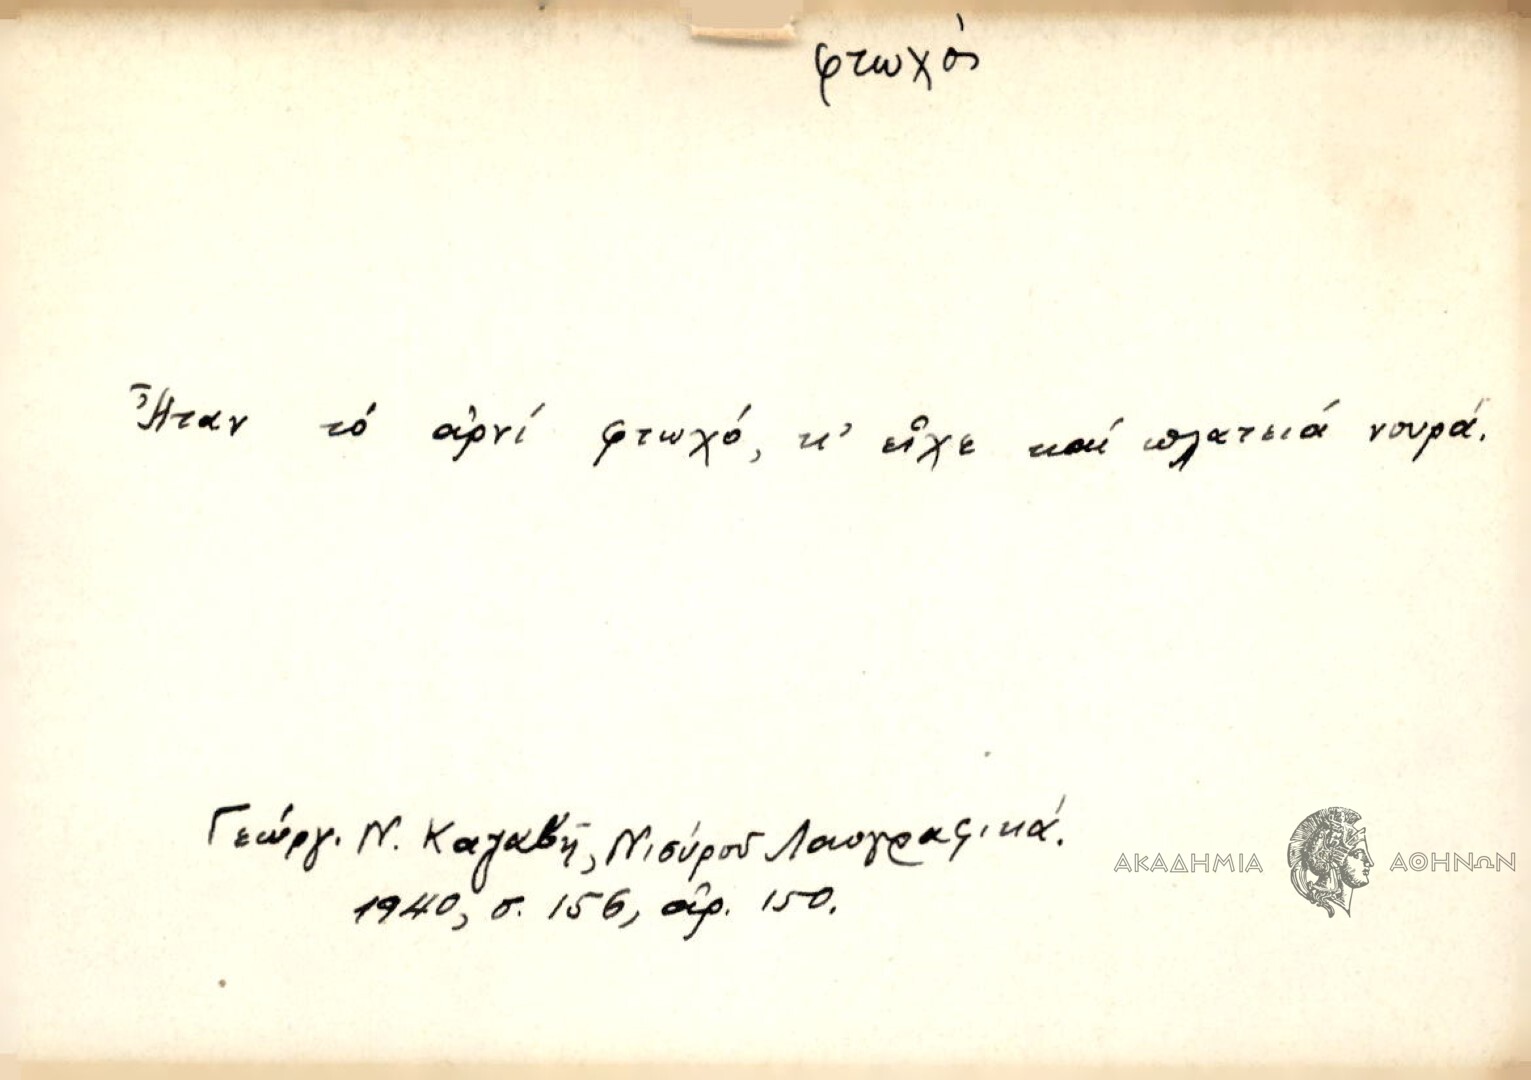 φτωχός
Ἦταν τό ἀρνί φτωχό, κ' εἶχε καί πλατειά νουρά.
Γεώργ. Ν. Καζαβῆ, Νισύρου Λαογραφικά.
ΑΚΑΔΗΜΙΑ ΑΘΗΝΩΝ
1940, σ. 156, ἀρ. 150.